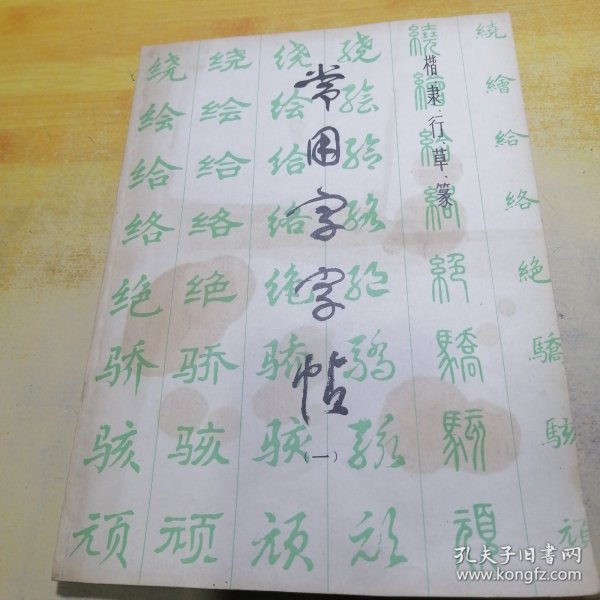 常用字字帖
（一）
楷、隶、行、草、篆
绕绘给络绝骄骇顽
绕绘给络绝骄骇顽
绕绘给络绝骄骇顽
绕绘给络绝骄骇顽
繞繪給絡絕驕駭頑
繞繪給絡絶驕駭頑
孔夫子旧书网
www.kongfz.com